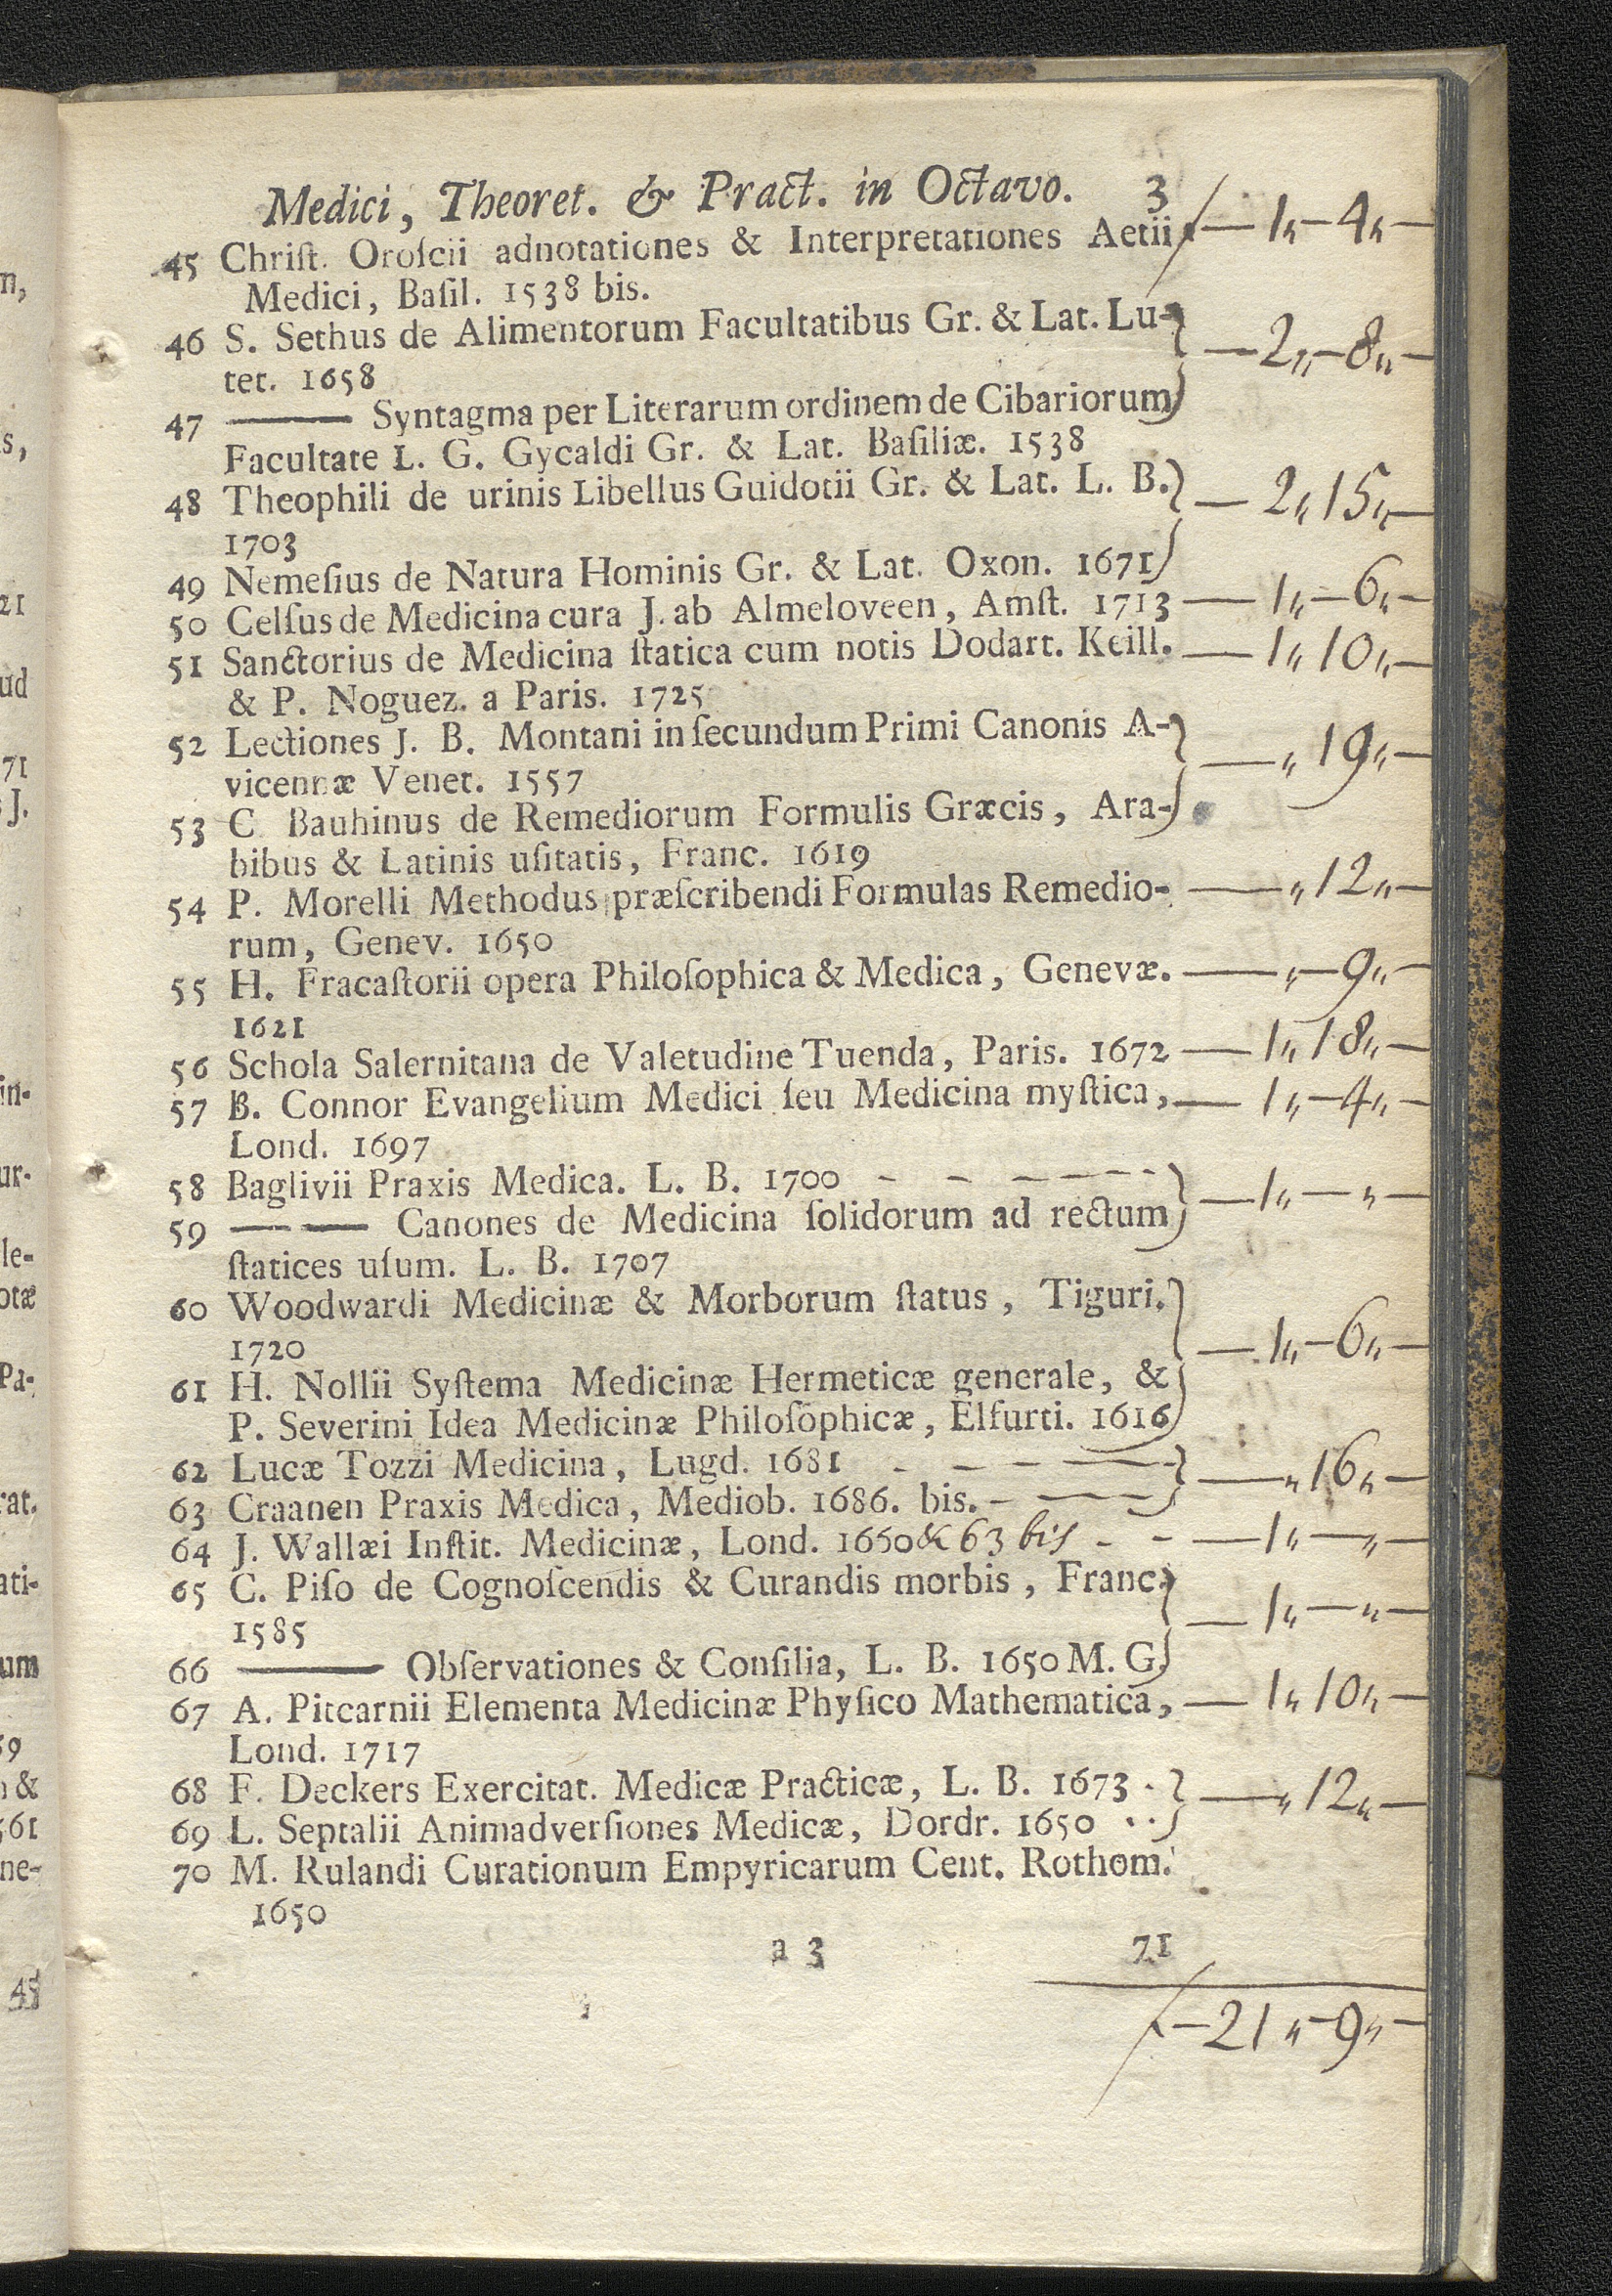 Medici, Theoret. & Pract. in Octavo. 3
45 Chriſt. Oroſcii adnotationes & Interpretationes Aetii ƒ — 1„ — 4„ —
Medici, Baſil. 1538 bis.
46 S. Sethus de Alimentorum Facultatibus Gr. & Lat. Lu-
tet. 1658 — 2„ — 8„ —
47 ——— Syntagma per Literarum ordinem de Cibariorum
Facultate L. G. Gycaldi Gr. & Lat. Baſiliæ. 1538
48 Theophili de urinis Libellus Guidotii Gr. & Lat. L. B. — 2„ 15„ —
1703
49 Nemeſius de Natura Hominis Gr. & Lat. Oxon. 1671
50 Celſus de Medicina cura J. ab Almeloveen, Amſt. 1713 — 1„ — 6„ —
51 Sanctorius de Medicina ſtatica cum notis Dodart. Keill. — 1„ 10„ —
& P. Noguez. a Paris. 1725
52 Lectiones J. B. Montani in ſecundum Primi Canonis A-
vicennæ Venet. 1557 — „ 19„ —
53 C Bauhinus de Remediorum Formulis Græcis, Ara-
bibus & Latinis uſitatis, Franc. 1619
54 P. Morelli Methodus præſcribendi Formulas Remedio- — „ 12„ —
rum, Genev. 1650
55 H. Fracaſtorii opera Philoſophica & Medica, Genevæ. — „ — 9„ —
1621
56 Schola Salernitana de Valetudine Tuenda, Paris. 1672 — 1„ 18„ —
57 B. Connor Evangelium Medici ſeu Medicina myſtica, — 1„ — 4„ —
Lond. 1697
58 Baglivii Praxis Medica. L. B. 1700 - - - - - — 1„ — „ —
59 — — Canones de Medicina ſolidorum ad rectum
ſtatices uſum. L. B. 1707
60 Woodwardi Medicinæ & Morborum ſtatus, Tiguri.
1720 — 1„ — 6„ —
61 H. Nollii Syſtema Medicinæ Hermeticæ generale, &
P. Severini Idea Medicinæ Philoſophicæ, Elfurti. 1616
62 Lucæ Tozzi Medicina, Lugd. 1681 - - - — — „ 16„ —
63 Craanen Praxis Medica, Mediob. 1686. bis. - —
64 J. Wallæi Inſtit. Medicinæ, Lond. 1660 & 63 bis - - — 1„ — „ —
65 C. Piſo de Cognoſcendis & Curandis morbis, Franc.
1585 — 1„ — „ —
66 ——— Obſervationes & Conſilia, L. B. 1650 M. G.
67 A. Pitcarnii Elementa Medicinæ Phyſico Mathematica, — 1„ 10„ —
Lond. 1717
68 F. Deckers Exercitat. Medicæ Practicæ, L. B. 1673 . — „ 12„ —
69 L. Septalii Animadverſiones Medicæ, Dordr. 1650 . .
70 M. Rulandi Curationum Empyricarum Cent. Rothom.
1650
a 3 71
ƒ — 21„ — 9„ —
n,
s,
21
ud
71
J.
in-
ur-
le-
otæ
Pa-
rat.
ati-
um
59
n &
561
ne-
45